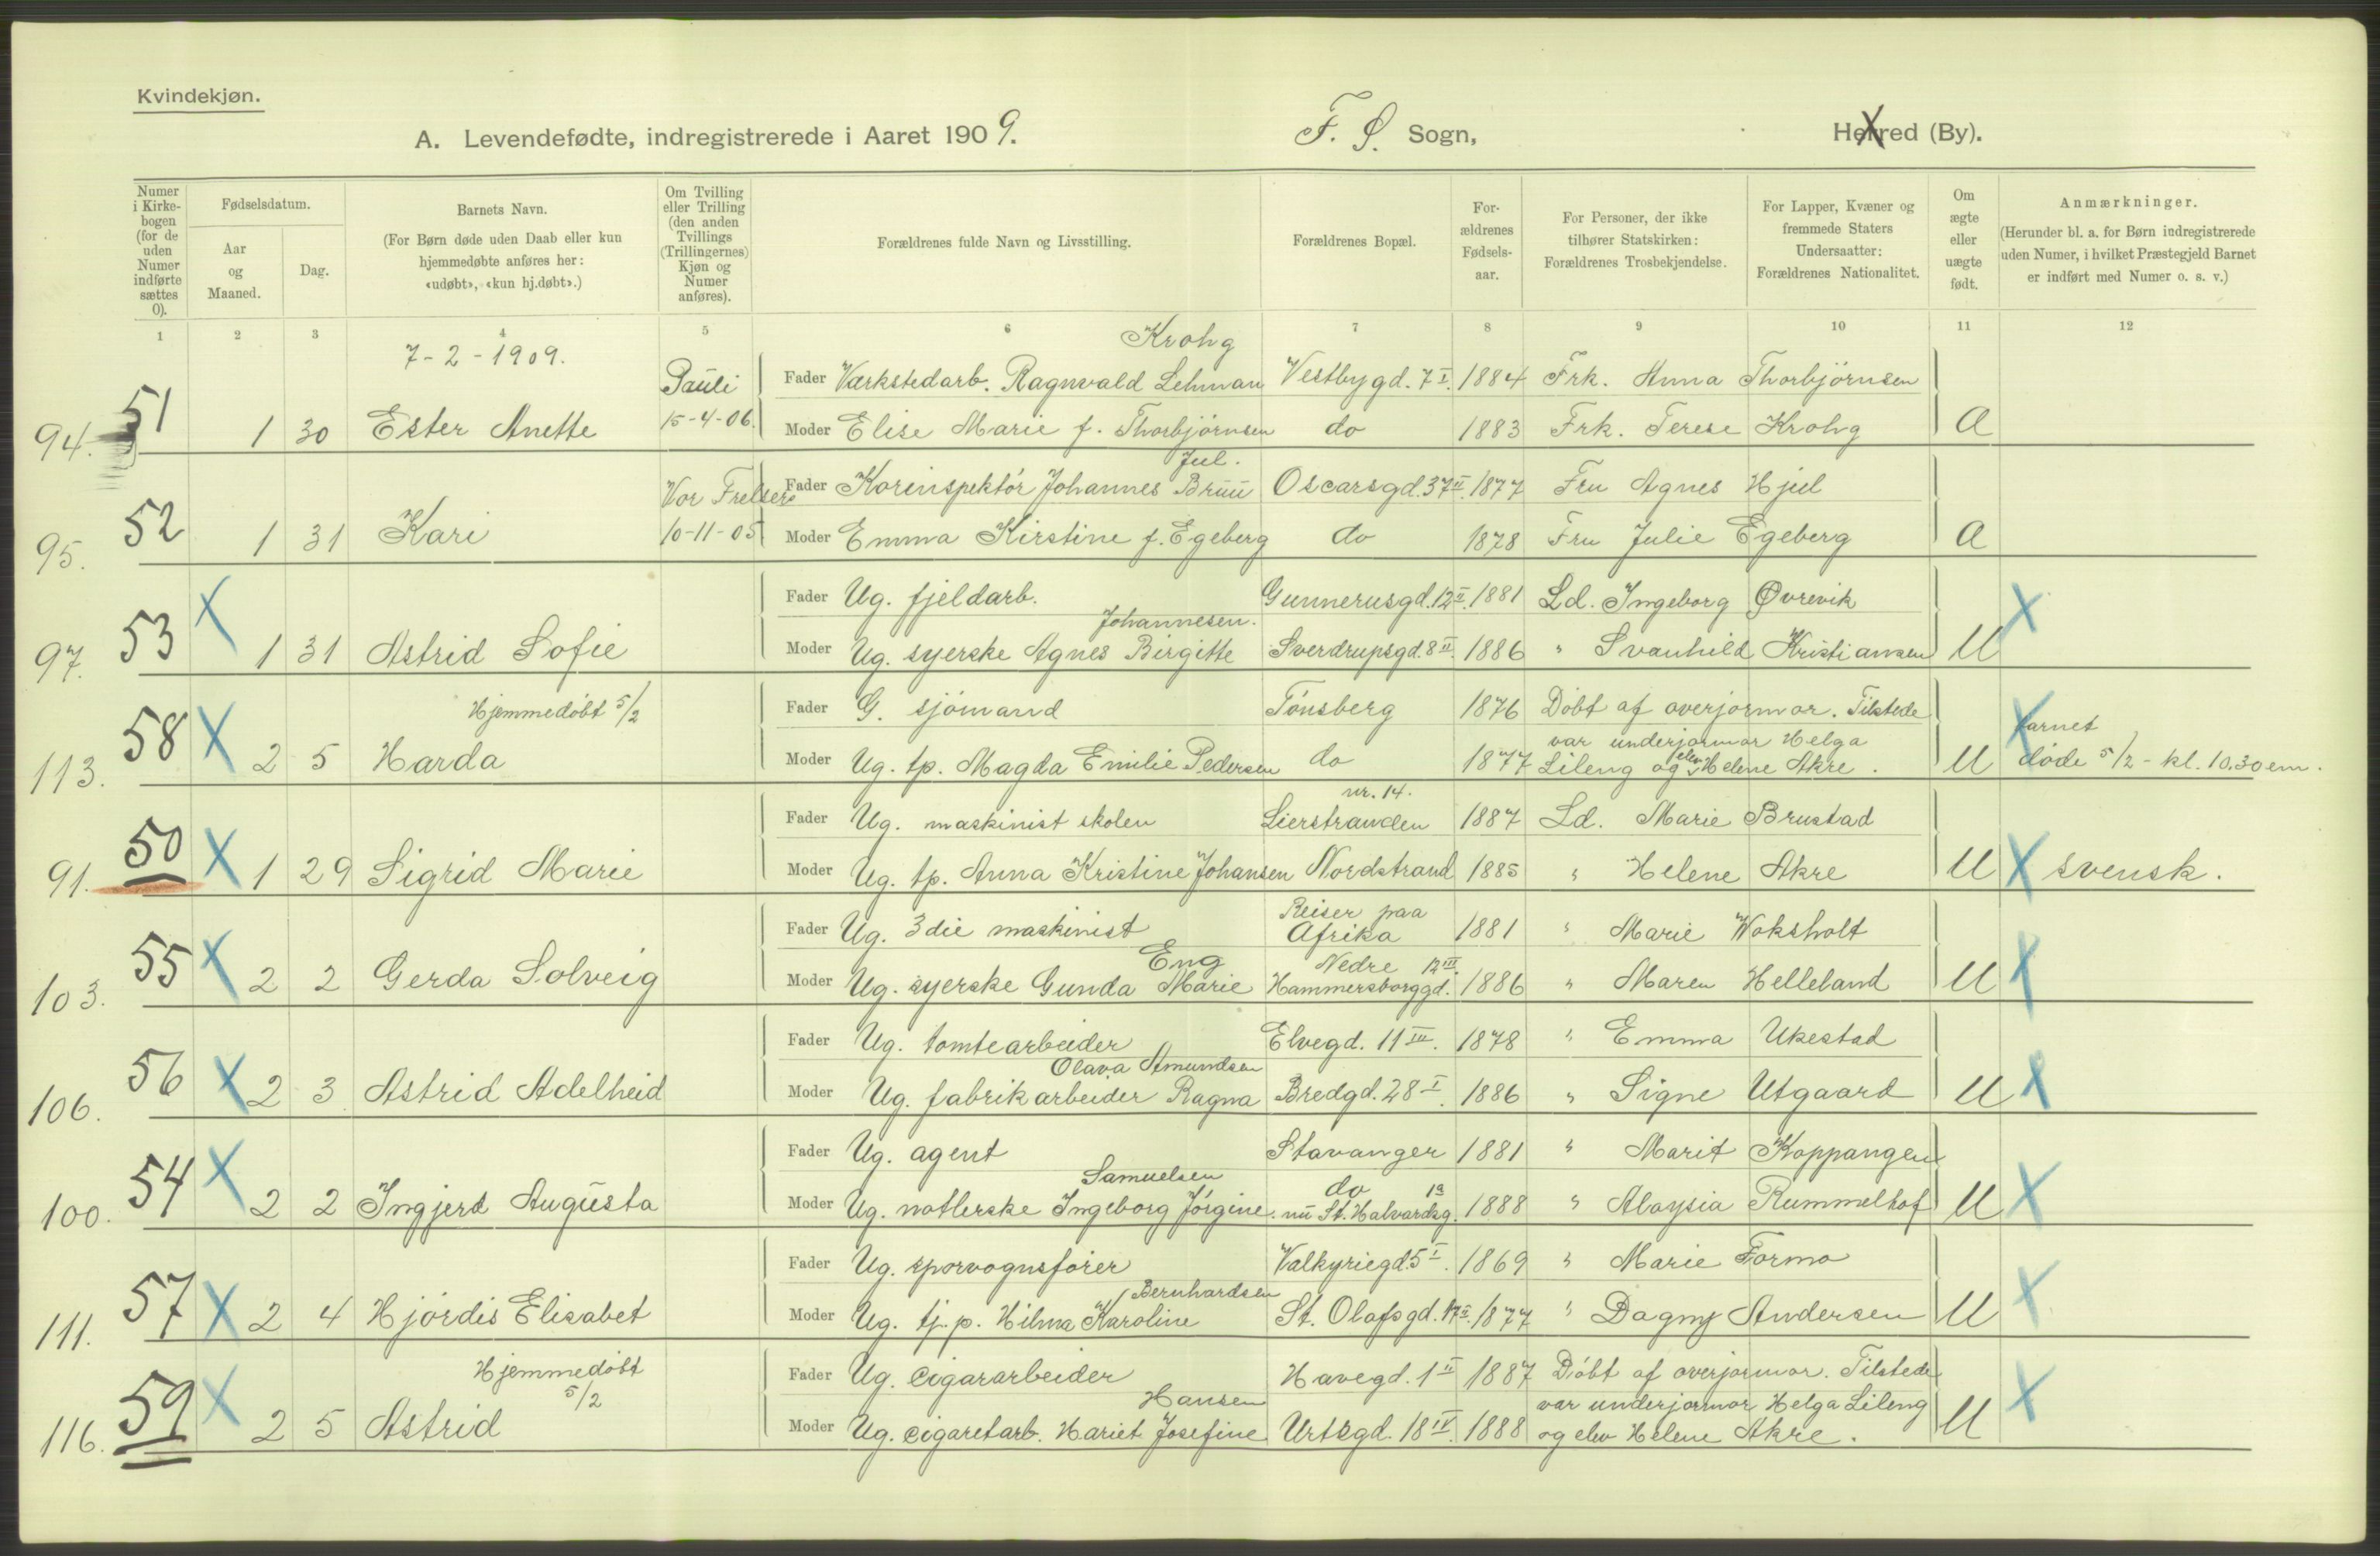 Kvindekjøn.
A. Levendefødte, indregistrerede i Aaret 1909. F. S. Sogn, Herred (By).
Numer i Kirkebogen (for de uden Numer indførte sættes 0).
Fødselsdatum.
Aar og Maaned.
Dag.
Barnets Navn.
(For Børn døde uden Daab eller kun hjemmedøbte anføres her: «udøbt», «kun hj.døbt».)
Om Tvilling eller Trilling (den anden Tvillings (Trillingernes) Kjøn og Numer anføres).
Forældrenes fulde Navn og Livsstilling.
Forældrenes Bopæl.
For-ældrenes Fødsels-aar.
For Personer, der ikke tilhører Statskirken: Forældrenes Trosbekjendelse.
For Lapper, Kvæner og fremmede Staters Undersaatter: Forældrenes Nationalitet.
Om ægte eller uægte født.
Anmærkninger.
(Herunder bl. a. for Børn indregistrerede uden Numer, i hvilket Præstegjeld Barnet er indført med Numer o. s. v.)
1 2 3 4 5 6 7 8 9 10 11 12
7-2-1909. Krohg
Pauli Fader Værkstedarb. Ragnvald Lehman Vestbygd. 7 I. 1884 Frk. Anna Thorbjörnsen
94. 51 1 30 Ester Anette 15-4-06. Moder Elise Marie f. Thorbjörnsen do 1883 Frk. Terese Krohg a
Jul.
Vor Frelsers Fader Korinspektör Johannes Bruu Oscarsgd. 37 II. 1877 Fru Agnes Hjul
95. 52 1 31 Kari 10-11-05 Moder Emma Kirstine f. Egeberg do 1878 Fru Julie Egeberg a
X Fader Ug. fjeldarb. Gunnerusgd. 12 II. 1881 Ld. Ingeborg Øvrevik X
Johannesen.
97. 53 1 31 Astrid Sofie Moder Ug. syerske Agnes Birgitte Sverdrupsgd. 8 II. 1886 " Svanhild Kristiansen U
Hjemmedöbt 5/2 Fader G. sjömand Tönsberg 1876 Döbt af overjormor. Tilstede
var underjormor Helga barnet
113. 58 X 2 5 Harda Moder Ug. tp. Magda Emilie Pedersen do 1877 Lileng og elev Helene Akre. U X döde 5/2 - kl. 10.30 em.
nr. 14.
Fader Ug. maskinist skolen Lierstranden 1887 Ld. Marie Brustad
91. 50 X 1 29 Sigrid Marie Moder Ug. tp. Anna Kristine Johansen Nordstrand 1885 " Helene Akre U X svensk.
Reiser paa
Fader Ug. 3die maskinist Afrika 1881 " Marie Woksholt
Eng Nedre 12 III.
103. 55 X 2 2 Gerda Solveig Moder Ug. syerske Gunda Marie Hammersborggd. 1886 " Maren Helleland U X
Fader Ug. tomtearbeider Elvegd. 11 III. 1878 " Emma Ukestad
Olava Amundsen
106. 56 X 2 3 Astrid Adelheid Moder Ug. fabrikarbeider Ragna Bredgd. 28 I. 1886 " Signe Utgaard U X
Fader Ug. agent Stavanger 1881 " Marit Koppangen
Samuelsen do 19
100. 54 X 2 2 Ingjerd Augusta Moder Ug. notlerske Ingeborg Jörgine. nu St. Halvardsg. 1888 " Aloysia Rummelhof U X
Fader Ug. sporvognsförer Valkyriegd. 5 I. 1869 " Marie Formo
Bernhardsen
111. 57 X 2 4 Hjördis Elisabet Moder Ug. tj. p. Hilma Karoline St. Olafsgd. 17 II. 1877 " Dagny Andersen U X
Hjemmedöbt 5/2 Fader Ug. cigararbeider Havegd. 1 II 1887 Döbt af overjormor. Tilstede
Hansen var underjormor Helga Lileng
116. 59 X 2 5 Astrid Moder Ug. cigaretarb. Hariet Josefine Urtegd. 18 IV. 1888 og elev Helene Akre. U X